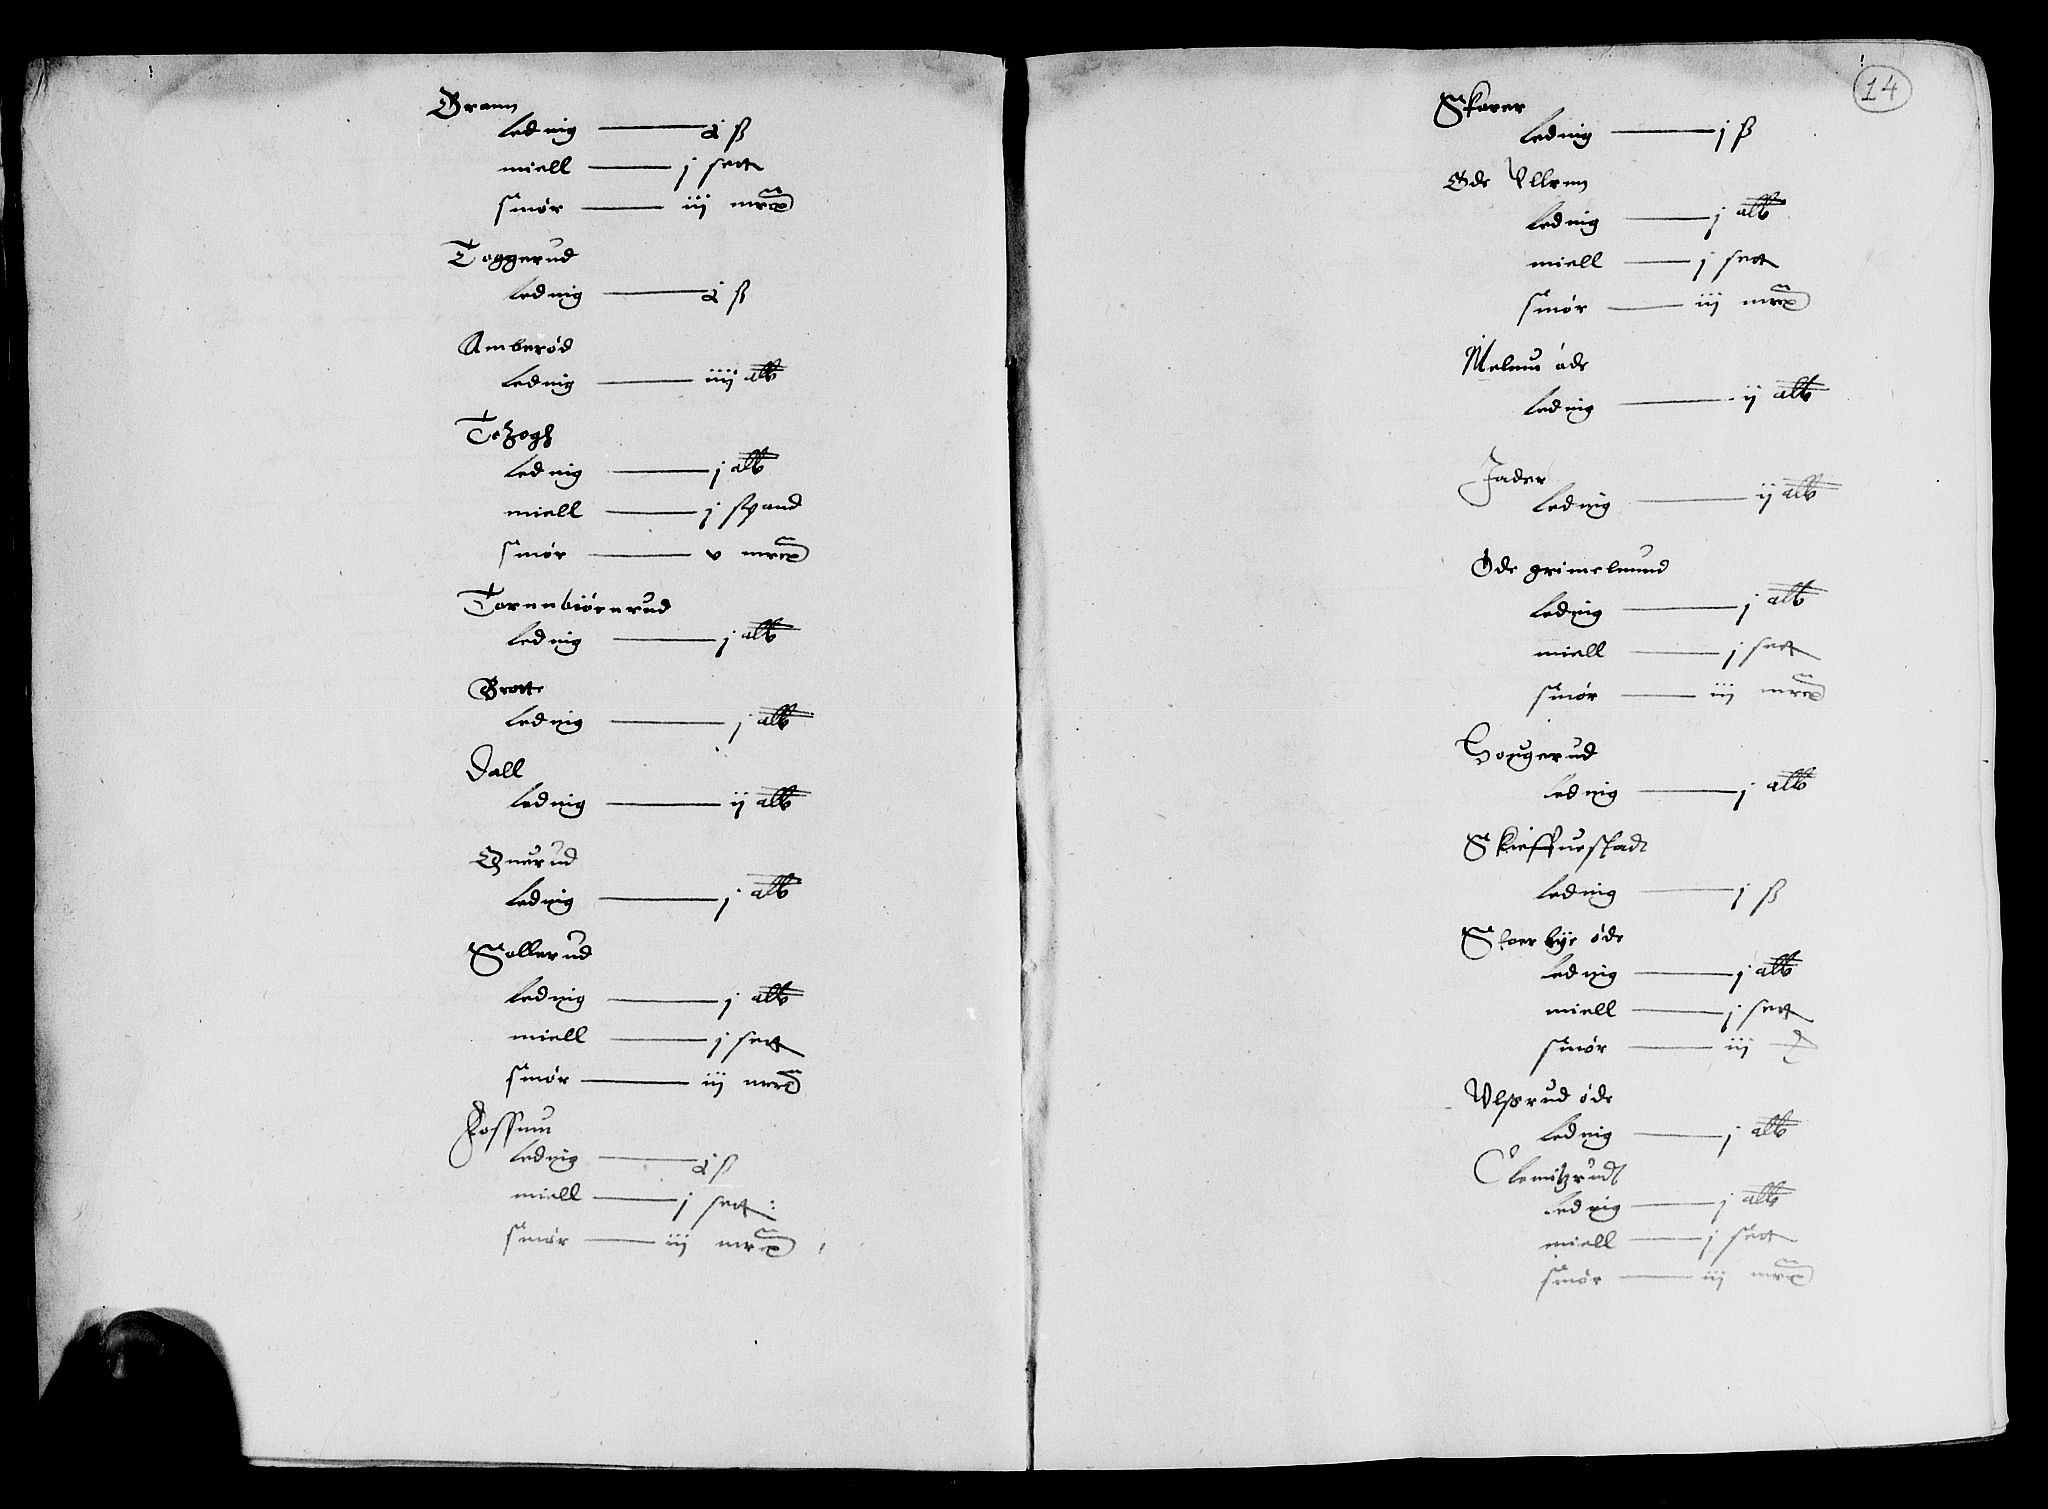 Grann
Lednig — j ß
miell — j sett
smør — iij mrcr
Toggerud
Lednig — j ß
Amberød
Lednig — iiij alb
Lednig — j alb
miell — j spand
smør — v mrcr
Torennbiørnrud
Lednig — j alb
Brotte
Lednig — j alb
Dall
Lednig — ij alb
Lednig — j alb
Sollerud
Lednig — j alb
miell — j sett
smør — iij mrcr
Fossum
Lednig — j ß
miell — j sett:
smør — iij mrcr
14
Skarer
Lednig — j ß
Øde Ullrenn
Lednig — j alb
miell — j sett
smør — iij mrcr
Melnus øde
Lednig — ij alb
Jader
Lednig — ij alb
Øde grimelmund
Lednig — j alb
miell — j sett
smør — iij mrcr
Hougerud
Lednig — j alb
Skieffuestadt
Lednig — j ß
Skaerbye øde
Lednig — j alb
miell — j sett
smør — iij
Ulßrud øde
Lednig — j alb
Clemitzrudt
Lednig — j alb
miell — j sett
smør — iij mrcr